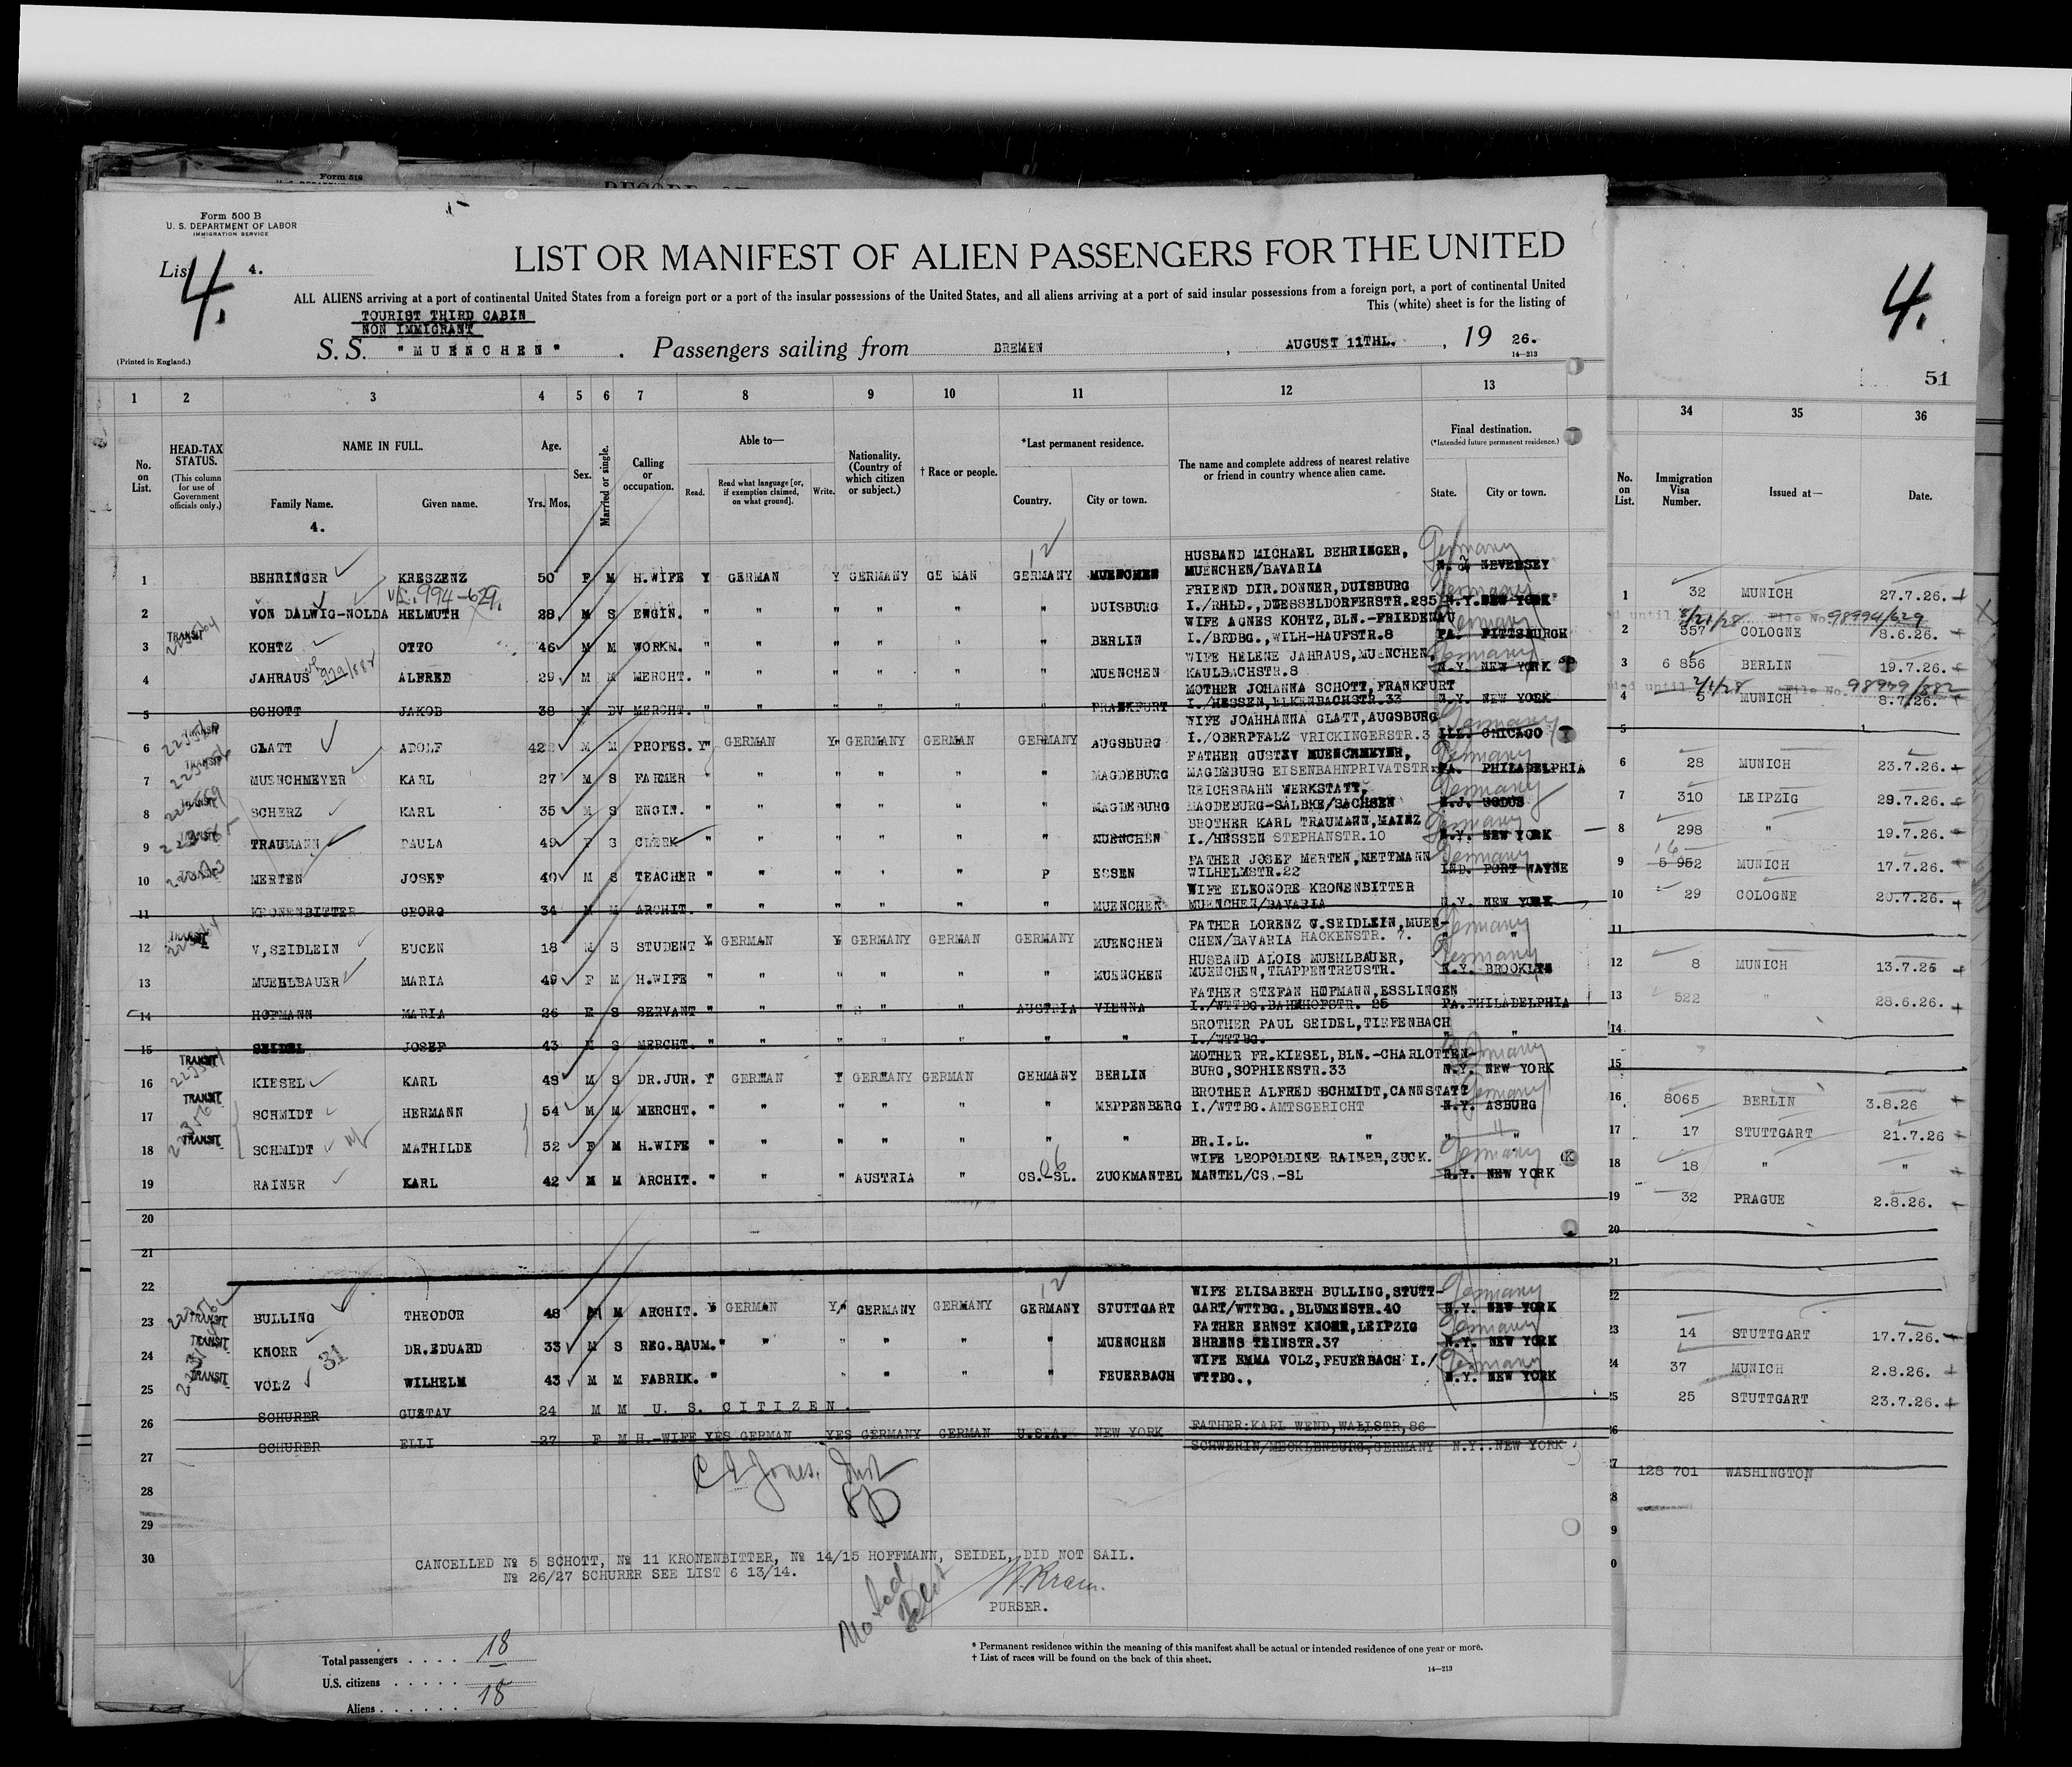 Form 518
Form 500 B
U. S. DEPARTMENT OF LABOR
IMMIGRATION SERVICE
List 4.
4.
LIST OR MANIFEST OF ALIEN PASSENGERS FOR THE UNITED
ALL ALIENS arriving at a port of continental United States from a foreign port or a port of the insular possessions of the United States, and all aliens arriving at a port of said insular possessions from a foreign port, a port of continental United
This (white) sheet is for the listing of
TOURIST THIRD CABIN
NON IMMIGRANT
S. S. "MUENCHEN" . Passengers sailing from BREMEN , AUGUST 11THL. , 19 26.
(Printed in England.)
14—213
4.
51
1 2 3 4 5 6 7 8 9 10 11 12 13 34 35 36
No. on List.
HEAD-TAX STATUS.
(This column for use of Government officials only.)
NAME IN FULL.
Family Name.
Given name.
4.
Age.
Yrs. Mos.
Sex.
Married or single.
Calling or occupation.
Able to—
Read.
Read what language [or, if exemption claimed, on what ground].
Write.
Nationality. (Country of which citizen or subject.)
† Race or people.
*Last permanent residence.
Country.
City or town.
The name and complete address of nearest relative or friend in country whence alien came.
Final destination.
(*Intended future permanent residence.)
State.
City or town.
No. on List.
Immigration Visa Number.
Issued at—
Date.
12
HUSBAND MICHAEL BEHRINGER, Germany
1 BEHRINGER KRESZENZ 50 F M H.WIFE Y GERMAN Y GERMANY GE MAN GERMANY MUENCHEN MUENCHEN/BAVARIA N.J. NEVERSEY 1 32 MUNICH 27.7.26.
994-629.
FRIEND DIR.DONNER,DUISBURG Germany
2 VON DALWIG-NOLDA HELMUTH 28 M S ENGIN. " " " " " " DUISBURG I./RHLD.,DUESSELDORFERSTR.285 N.Y. NEW YORK 2 357 COLOGNE 8.6.26.
until 8/21/28 File No. 98994/629
WIFE AGNES KOHTZ, BLN.-FRIEDENAU Germany
TRANSIT
3 KOHTZ OTTO 46 M M WORKM. " " " " " " BERLIN I./BRDBG.,WILH-HAUFSTR.8 PA. PITTSBURGH 3 6 856 BERLIN 19.7.26.
WIFE HELENE JAHRAUS,MUENCHEN, Germany
4 JAHRAUS 979/882 ALFRED 29 M M MERCHT. " " " " " " MUENCHEN KAULBACHSTR.8 N.Y. NEW YORK 4 5 MUNICH 8.7.26.
until 2/1/28 File No. 98979/882
MOTHER JOHANNA SCHOTT,FRANKFURT
5 SCHOTT JAKOB 38 M DV MERCHT. " " " " " " FRANKFURT I./HESSEN,ELKENBACHSTR.33 N.Y. NEW YORK 5
WIFE JOAHHANNA GLATT,AUGSBURG Germany
6 GLATT ADOLF 42 M M PROFES. Y" GERMAN Y" GERMANY GERMAN GERMANY AUGSBURG I./OBERPFALZ VRICKINGERSTR.3 ILL. CHICAGO 6 28 MUNICH 23.7.26.
TRANSIT
FATHER GUSTAV MUENCHMEYER, Germany
7 MUENCHMEYER KARL 27 M S FARMER " " " " " " MAGDEBURG MAGDEBURG EISENBAHNPRIVATSTR. PA. PHILADELPHIA 7 310 LEIPZIG 29.7.26.
REICHSBAHN WERKSTATT, Germany
8 SCHERZ KARL 35 M S ENGIN. " " " " " " MAGDEBURG MAGDEBURG-SALBKE/SACHSEN N.J. 8 298 " 19.7.26.
BROTHER KARL TRAUMANN,MAINZ Germany
9 TRAUMANN PAULA 49 F S CLERK " " " " " " MUENCHEN I./HESSEN STEPHANSTR.10 N.Y. NEW YORK 9 16 5 952 MUNICH 17.7.26.
FATHER JOSEF MERTEN,METTMANN Germany
10 MERTEN JOSEF 40 M S TEACHER " " " ' " P ESSEN WILHELMSTR.22 IND. FORT WAYNE 10 29 COLOGNE 20.7.26.
WIFE ELEONORE KRONENBITTER
11 KRONENBITTER GEORG 34 M M ARCHIT. " " " " " " MUENCHEN MUENCHEN/BAVARIA N.Y. NEW YORK 11
TRANSIT
FATHER LORENZ V.SEIDLEIN,MUEN- Germany
12 V,SEIDLEIN EUGEN 18 M S STUDENT Y GERMAN Y GERMANY GERMAN GERMANY MUENCHEN CHEN/BAVARIA HACKENSTR. 7. " " 12 8 MUNICH 13.7.26
HUSBAND ALOIS MUEHLBAUER, Germany
13 MUEHLBAUER MARIA 49 F M H.WIFE " " " " " " MUENCHEN MUENCHEN,TRAPPENTREUSTR. N.Y. BROOKLYN 13 522 " 28.6.26.
FATHER STEFAN HOFMANN,ESSLINGEN
14 HOFMANN MARIA 26 F S SERVANT " " " " " AUSTRIA VIENNA I./WTTBG.BAHNHOFSTR. 25 PA.PHILADELPHIA 14
BROTHER PAUL SEIDEL,TIEFENBACH
15 SEIDEL JOSEF 43 M S MERCHT. " " " " " " " I./WTTBG. " " 15
TRANSIT
MOTHER FR.KIESEL,BLN.-CHARLOTTEN- Germany
16 KIESEL KARL 48 M S DR.JUR. Y GERMAN Y GERMANY GERMAN GERMANY BERLIN BURG,SOPHIENSTR.33 N.Y. NEW YORK 16 8065 BERLIN 3.8.26
TRANSIT
BROTHER ALFRED SCHMIDT,CANNSTATT Germany
17 SCHMIDT HERMANN 54 M M MERCHT. " " " " " " MEPPENBERG I./WTTBG.AMTSGERICHT N.Y. ASBURG 17 17 STUTTGART 21.7.26
TRANSIT
18 SCHMIDT MATHILDE 52 F M H.WIFE " " " " " " " BR.I.L. " " " 18 18 " "
WIFE LEOPOLDINE RAINER,ZUCK. Germany
06
19 RAINER KARL 42 M M ARCHIT. " " " AUSTRIA " CS.-SL. ZUCKMANTEL MANTEL/CS.-SL N.Y. NEW YORK 19 32 PRAGUE 2.8.26.
20 20
21 21
22 22
12
WIFE ELISABETH BULLING,STUTT- Germany
TRANSIT
23 BULLING THEODOR 48 M M ARCHIT. Y GERMAN Y" GERMANY GERMANY GERMANY STUTTGART GART/WTTBG.,BLUMENSTR.40 N.Y. NEW YORK 23 14 STUTTGART 17.7.26.
TRANSIT
FATHER ERNST KNORR,LEIPZIG Germany
24 KNORR 31 DR.EDUARD 33 M S REG.BAUM. " " " " " " MUENCHEN EHRENSTEINSTR.37 N.Y. NEW YORK 24 37 MUNICH 2.8.26.
TRANSIT
WIFE EMMA VOLZ,FEUERBACH I./ Germany
25 VOLZ WILHELM 43 M M FABRIK. " " " " " FEUERBACH WTTBG., N.Y. NEW YORK 25 25 STUTTGART 23.7.26.
26 SCHURER GUSTAV 24 M M U. S. CITIZEN.
FATHER:KARL WEND,WALLSTR,86
27 SCHURER ELLI 27 F M H.-WIFE YES GERMAN YES GERMANY GERMAN U.S.A. NEW YORK SCHWERIN/MECKLENBURG,GERMANY N.Y. NEW YORK 128 701 WASHINGTON
28
29
30
CANCELLED № 5 SCHOTT, № 11 KRONENBITTER, № 14/15 HOFFMANN, SEIDEL, DID NOT SAIL.
№ 26/27 SCHURER SEE LIST 6 13/14.
PURSER.
Total passengers . . . . 18
U.S. citizens . . . . . .
Aliens . . . . . . 18
* Permanent residence within the meaning of this manifest shall be actual or intended residence of one year or more.
† List of races will be found on the back of this sheet.
14—213